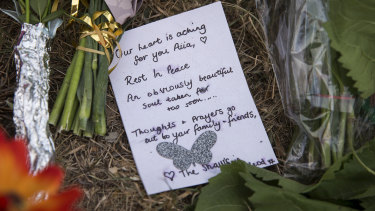 Our heart is aching
for you Aiia, ♡
Rest In Peace
An obviously beautiful
soul taken far
too soon....
Thoughts & Prayers go
out to your family + friends,
♡ The